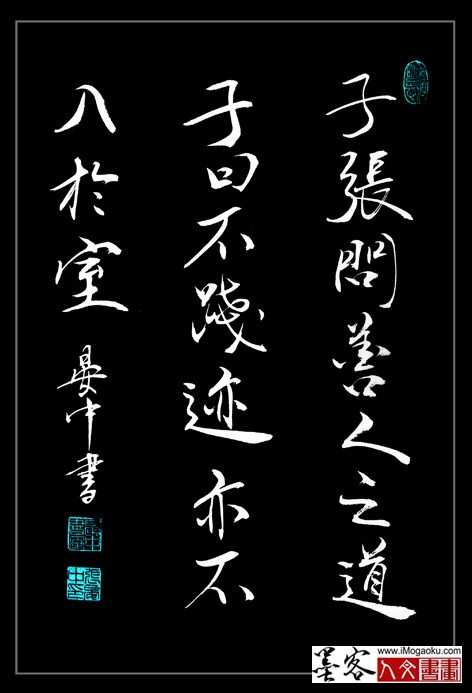 子張問善人之道
子曰不踐迹亦不
入於室
晏中書
墨客
www.iMogaoku.com
人文書畫